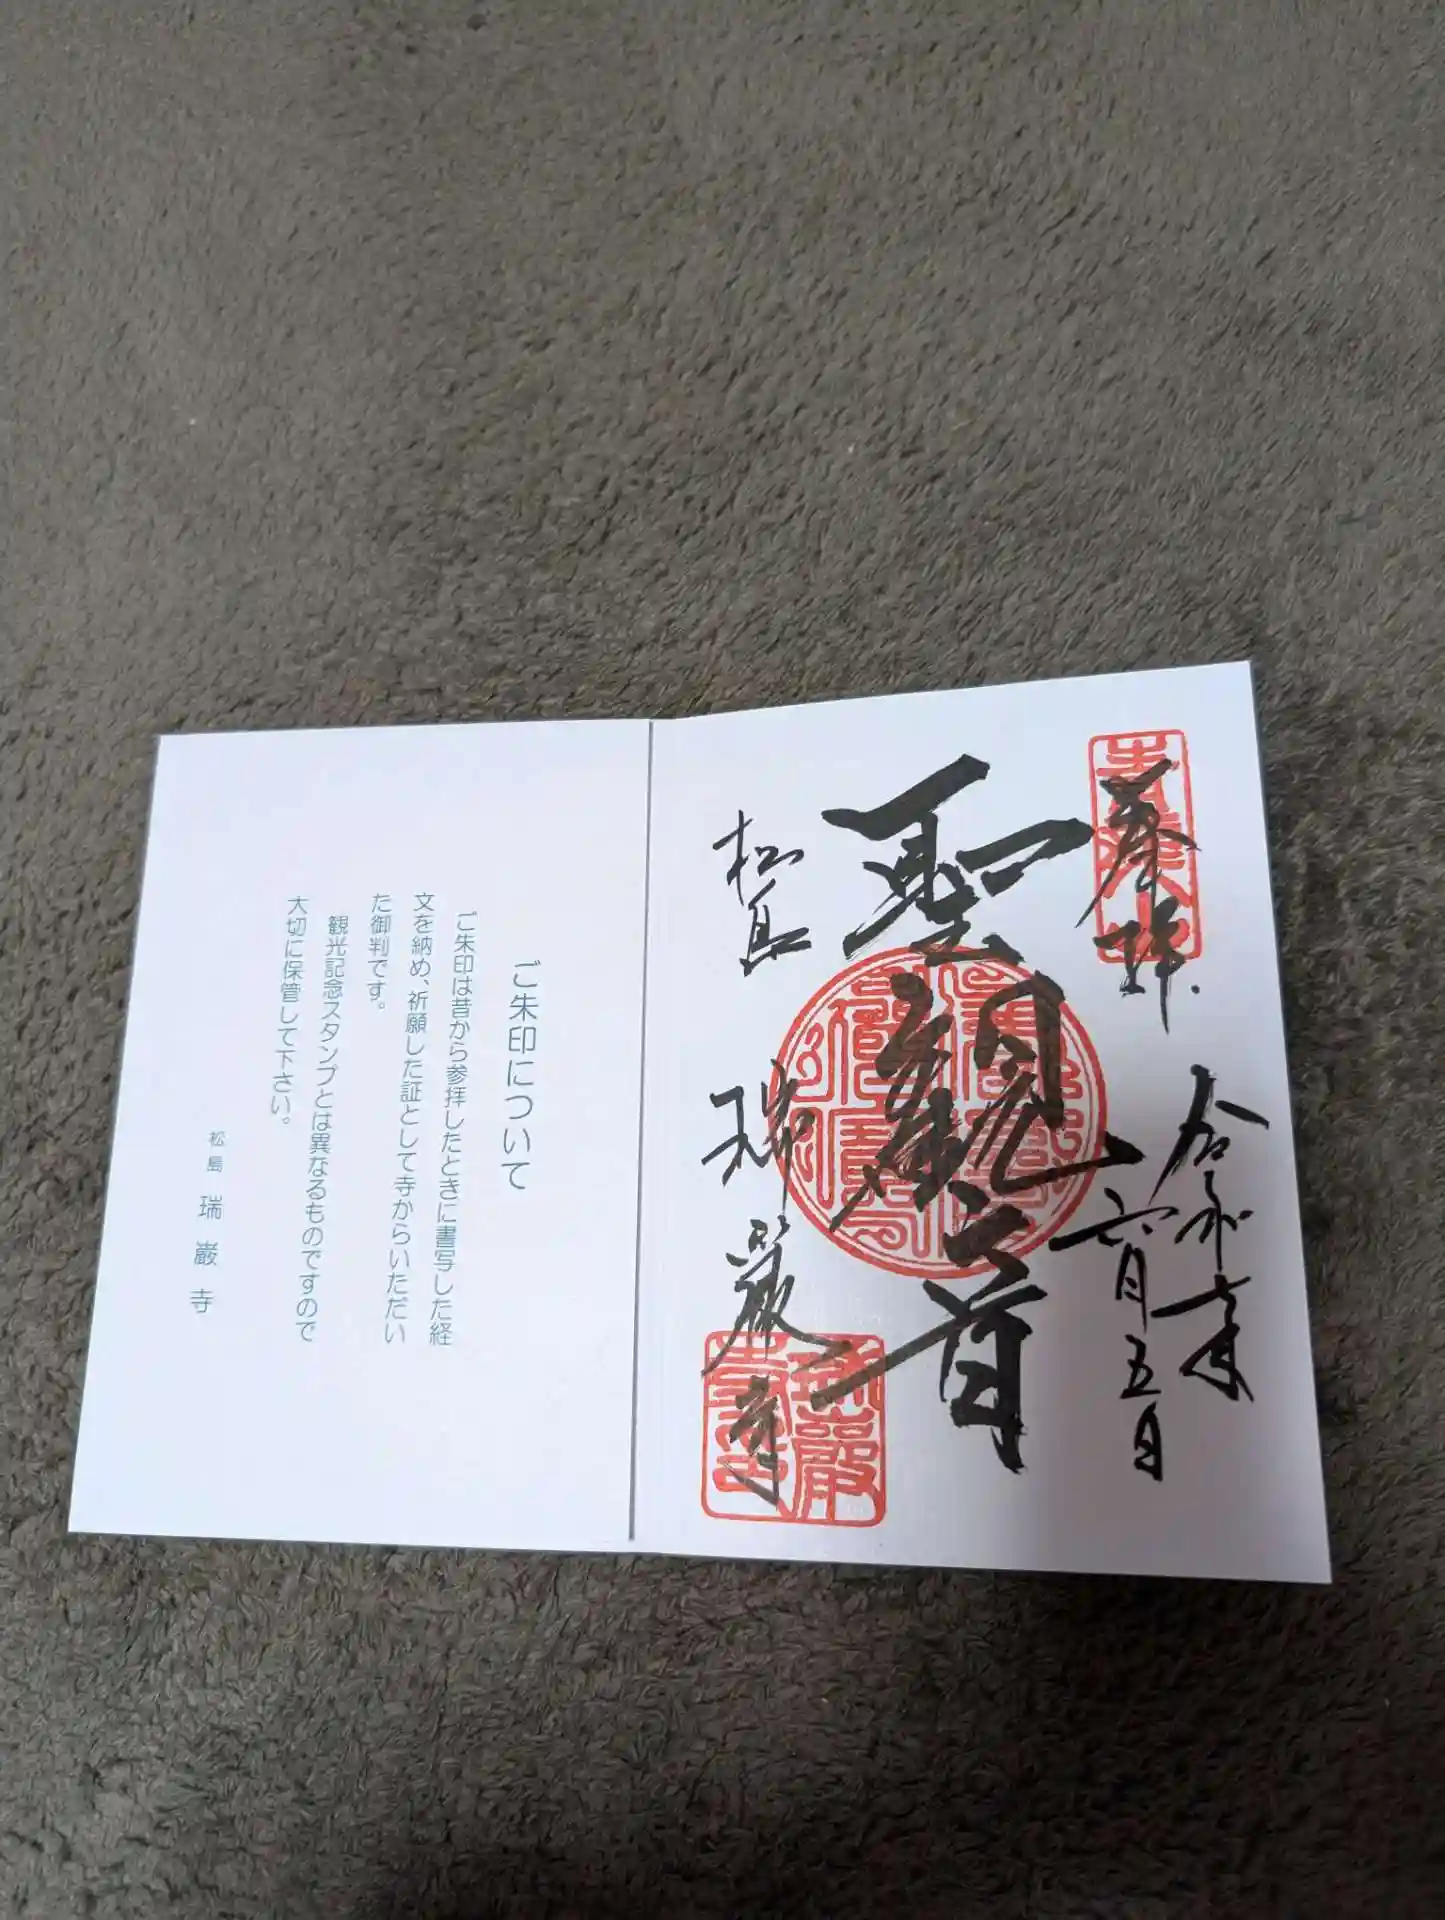 奉拝
令和
六月五日
聖観音
松島
瑞巌寺
ご朱印について
ご朱印は昔から参拝したときに書写した経
文を納め、祈願した証として寺からいただい
た御判です。
観光記念スタンプとは異なるものですので
大切に保管して下さい。
松島 瑞巌寺